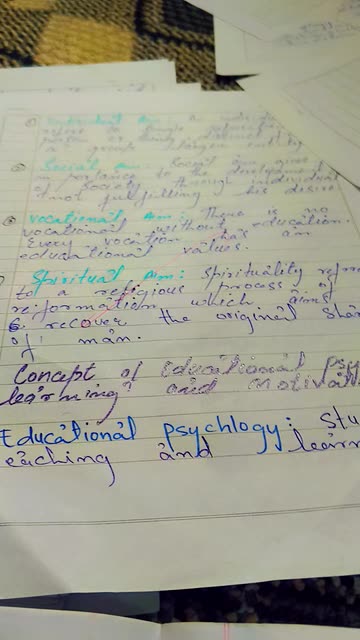 Individual Aim: A
refers to single
person or thing,
a group larger entity
Social Aim. Social Aim gives
importance to the development
of Society through individual
not fulfilling his desire
vocational Aim: There is no
vocational without education.
Every vocation has an
educational values.
Spiritual Aim: spirituality refers
to a religious process of
reformation which aims
to recover the original sha
of man.
Concept of Educational Psy
learning and Motivati
Educational psychlogy: Stu
eaching and learn